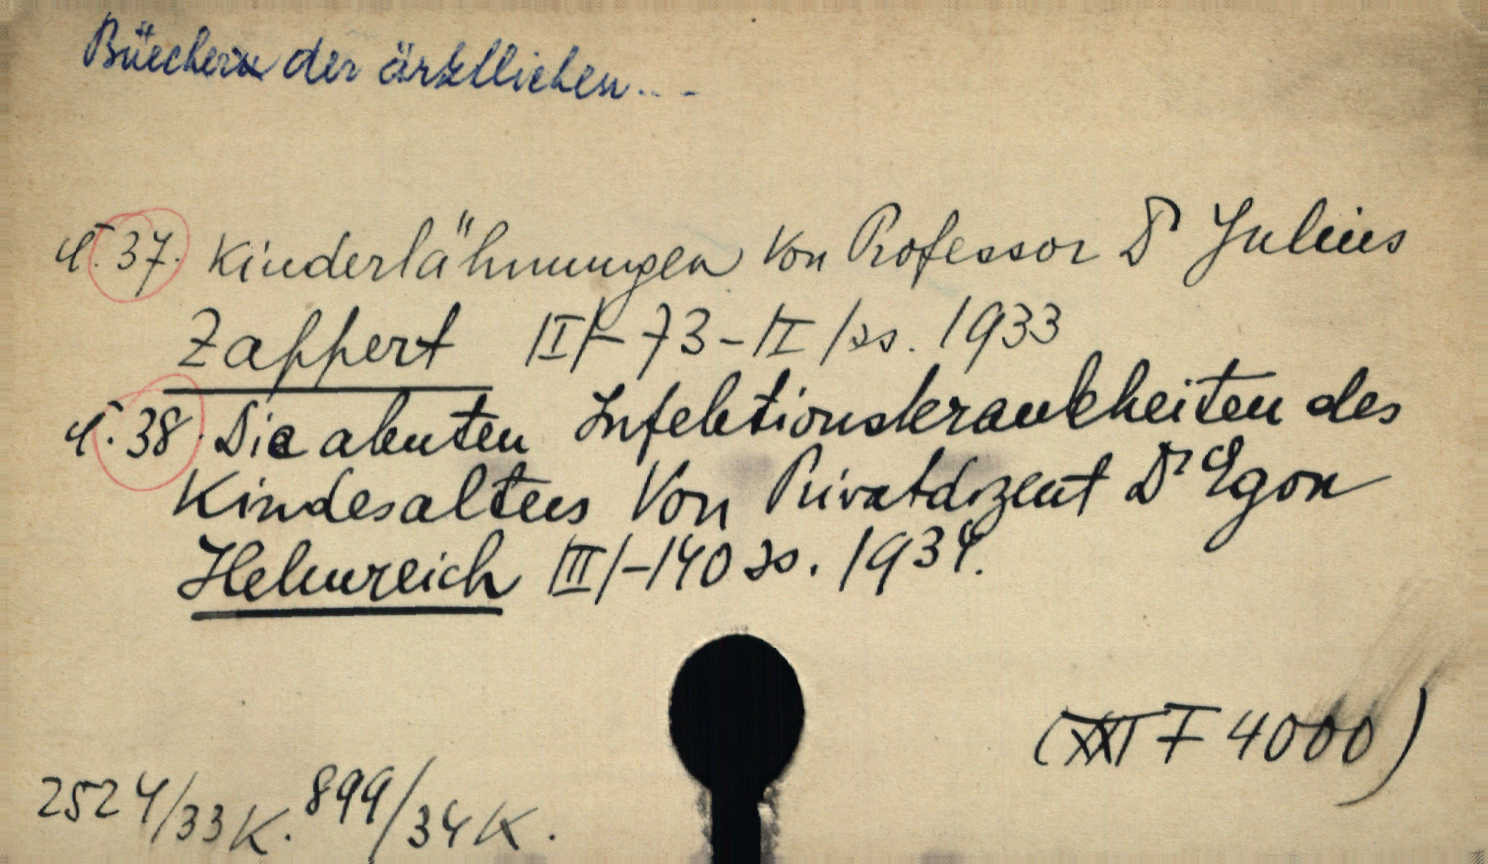 Büecher der ärztlichen...
T. 37. Kinderlähmungen Von Professor Dr Julius
Zappert |II|-73-|I|ss. 1933
T. 38. Die akuten Infektionskrankheiten des
Kindesalters Von Privatdozent Dr Egon
Helmreich |III|-140 ss. 1934.
(XXI F 4000)
2524/33K. 899/34K.